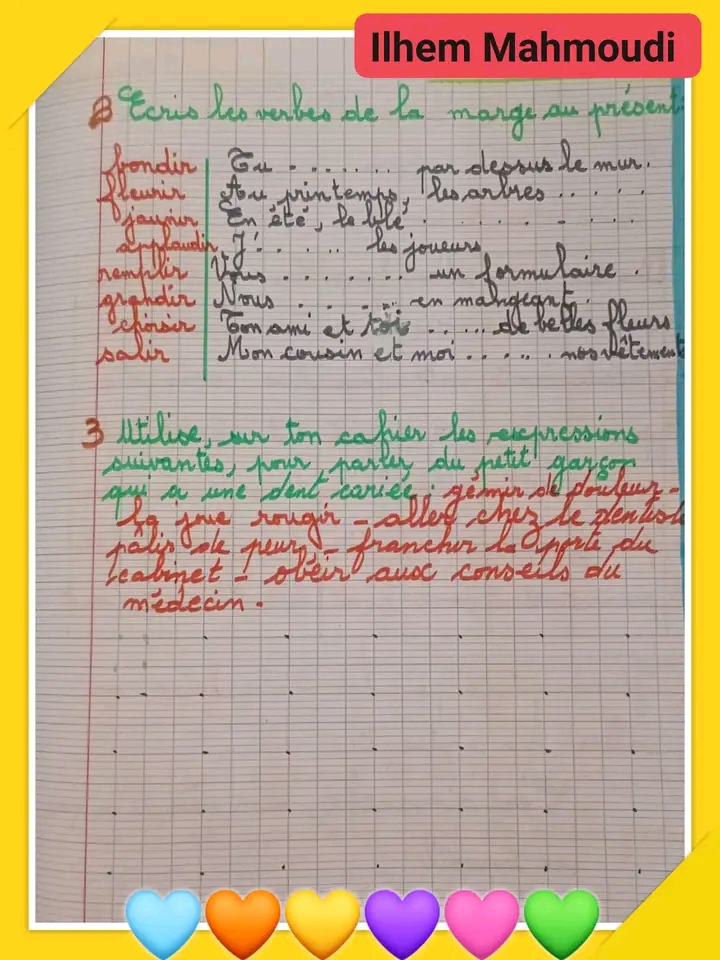 Ilhem Mahmoudi
2 Ecris les verbes de la marge au présent
bondir Tu . . . . . . . par dessus le mur.
fleurir Au printemps, les arbres . . . . .
jaunir En été, le blé . . . . . . .
applaudir J' . . . . . les joueurs
remplir Vous . . . . . . . un formulaire .
grandir Nous . . . . . . en mahgeant .
choisir Ton ami et toi . . . . . de belles fleurs
salir Mon cousin et moi . . . . . nos vêtement
3 Utilise, sur ton cahier les expressions
suivantes, pour parler du petit garçon
qui a une dent cariée : gémir de douleur -
la joue rougir - aller chez le dentiste
pâlir de peur, - franchir la porte du
cabinet - obéir aux conseils du
médecin .